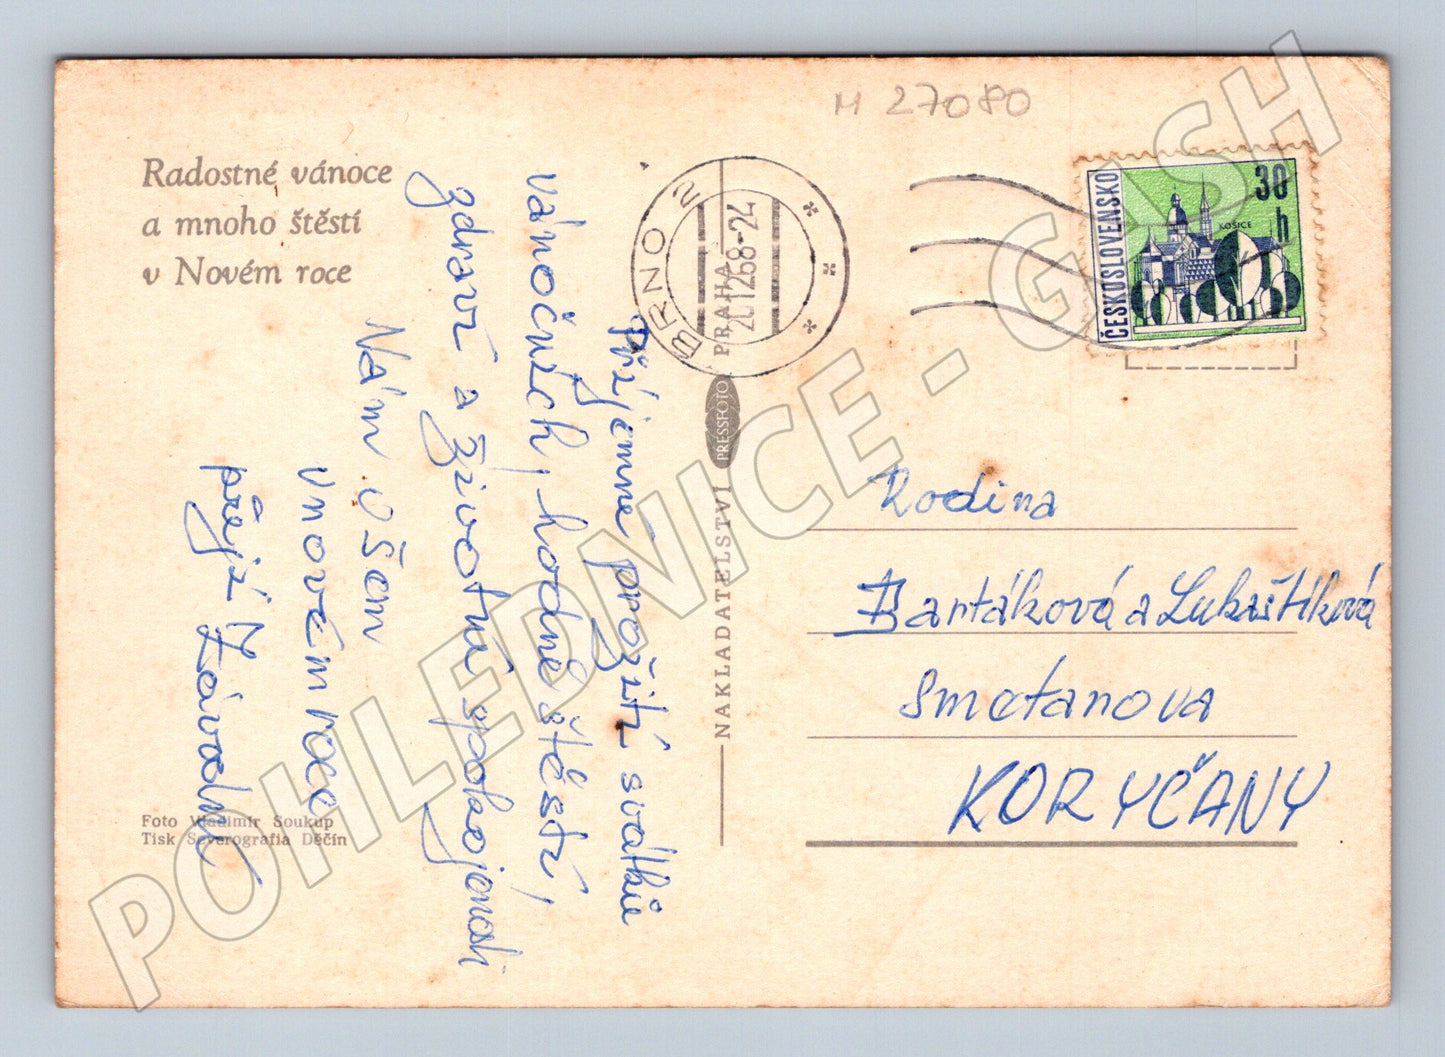 M 27080
Radostné vánoce
a mnoho štěstí
v Novém roce
Příjemné prožití svátků
vánočních, hodně štěstí,
zdraví a životní spokojenosti
Vám všem
v novém roce
přejí Závodní
Foto Vladimír Soukup
Tisk Severografia Děčín
BRNO 2
20.12.68-24
NAKLADATELSTVÍ PRESSFOTO PRAHA
ČESKOSLOVENSKO
30
h
KOŠICE
Rodina
Bartáková a Lukaštíková
Smetanova
KORYČANY
POHLEDNICE - GASH